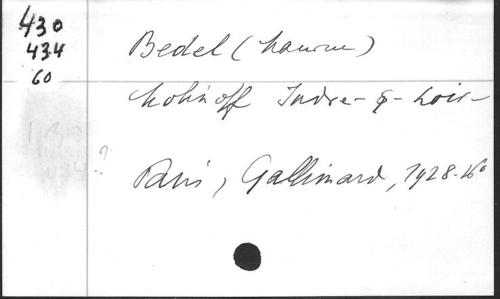 430
434
60
Bedel (Maurice)
Molinoff Indre-&-Loire
Paris, Gallimard, 1928-16°
?